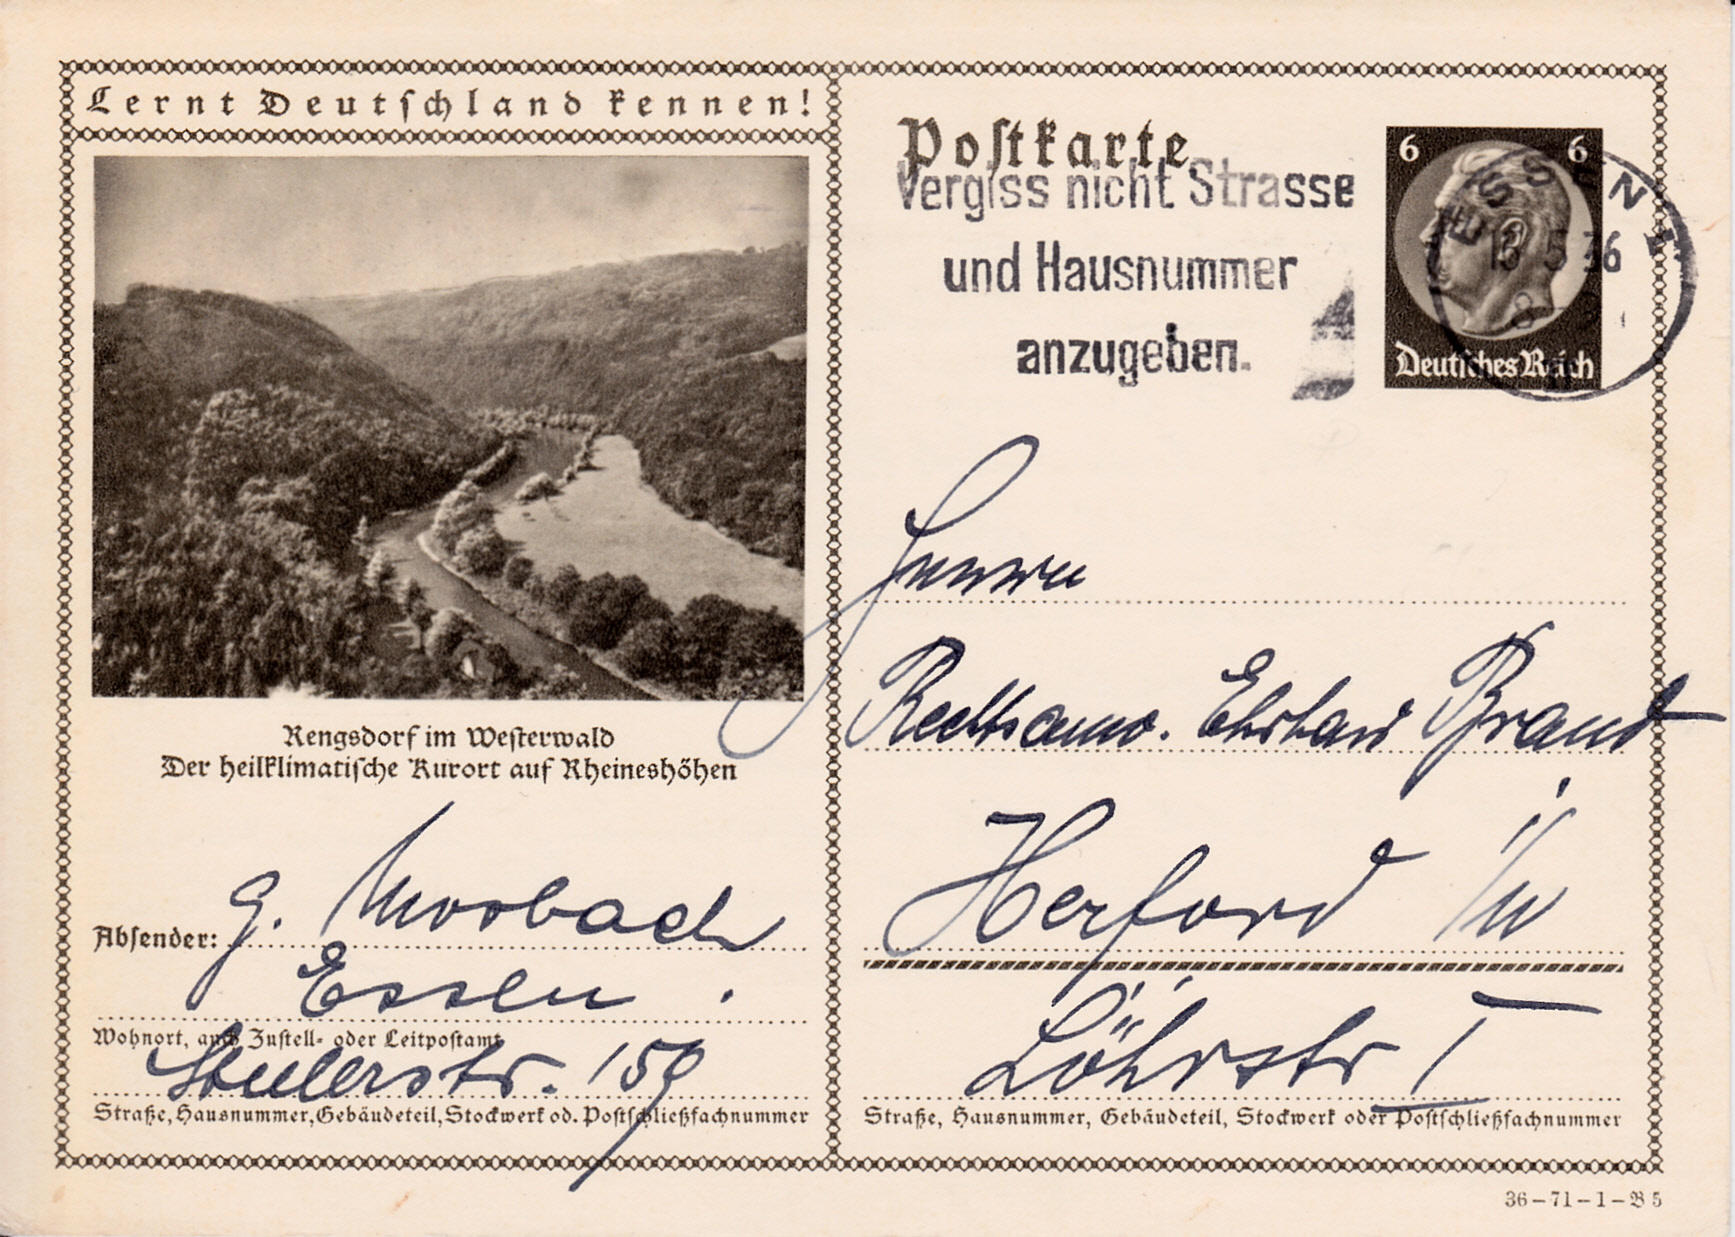 Lernt Deutschland kennen!
Rengsdorf im Westerwald
Der heilklimatische Kurort auf Rheineshöhen
Absender: G. Mosbach
Essen.
Wohnort, auch Zustell- oder Leitpostamt
str. 159
Straße, Hausnummer, Gebäudeteil, Stockwerk od. Postschließfachnummer
Postkarte
Vergiss nicht Strasse
und Hausnummer
anzugeben.
6 6
Deutsches Reich
ESSEN 1
13.5.36
Herrn
Rechtsanw. Brand
Herford i/W
Löhrstr 1
Straße, Hausnummer, Gebäudeteil, Stockwerk oder Postschließfachnummer
36-71-1-B5